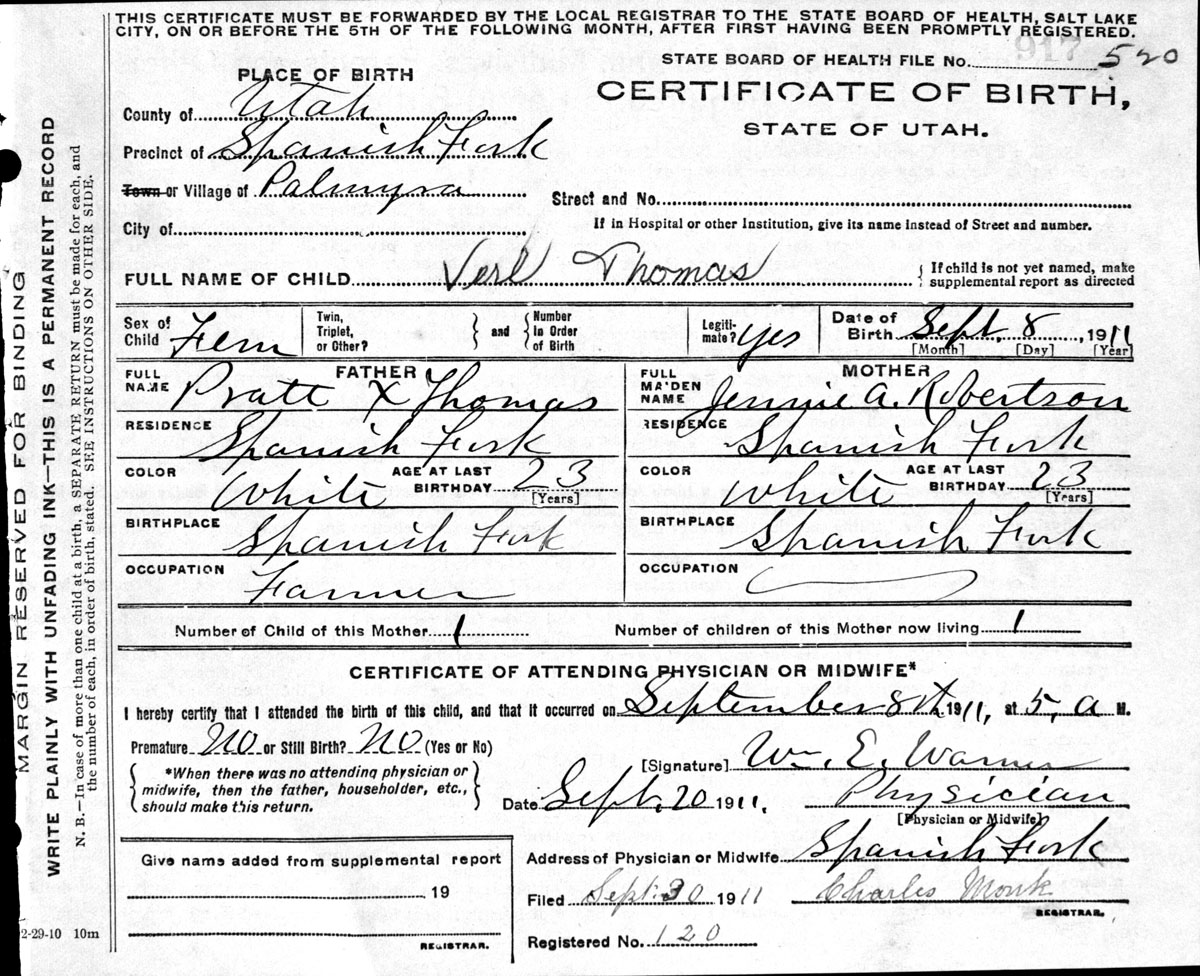 THIS CERTIFICATE MUST BE FORWARDED BY THE LOCAL REGISTRAR TO THE STATE BOARD OF HEALTH, SALT LAKE
CITY, ON OR BEFORE THE 5TH OF THE FOLLOWING MONTH, AFTER FIRST HAVING BEEN PROMPTLY REGISTERED.
917
STATE BOARD OF HEALTH FILE No. 520
PLACE OF BIRTH
CERTIFICATE OF BIRTH,
STATE OF UTAH.
County of Utah
Precinct of Spanish Fork
Town or Village of Palmyra
Street and No.
City of
If in Hospital or other Institution, give its name instead of Street and number.
FULL NAME OF CHILD Verl Thomas { If child is not yet named, make
supplemental report as directed
Sex of
Child Fem
Twin,
Triplet,
or Other? } and { Number
In Order
of Birth
Legiti-
mate? Yes
Date of
Birth Sept. 8, 1911
[Month] [Day] [Year]
FATHER
FULL
NAME Pratt X Thomas
MOTHER
FULL
MAIDEN
NAME Jennie A. Robertson
RESIDENCE Spanish Fork
RESIDENCE Spanish Fork
COLOR White AGE AT LAST
BIRTHDAY 23
[Years]
COLOR White AGE AT LAST
BIRTHDAY 23
[Years]
BIRTHPLACE Spanish Fork
BIRTHPLACE Spanish Fork
OCCUPATION Farmer
OCCUPATION
Number of Child of this Mother 1
Number of children of this Mother now living 1
CERTIFICATE OF ATTENDING PHYSICIAN OR MIDWIFE*
I hereby certify that I attended the birth of this child, and that it occurred on September 8th 1911, at 5, a M.
Premature No or Still Birth? No (Yes or No)
{ *When there was no attending physician or
midwife, then the father, householder, etc.,
should make this return. }
[Signature] Wm. E. Warner
Date Sept. 20 1911. Physician
[Physician or Midwife]
Address of Physician or Midwife Spanish Fork
Give name added from supplemental report
19
REGISTRAR.
Filed Sept. 30 1911 Charles Monk
REGISTRAR.
Registered No. 120
2-29-10 10m
MARGIN RESERVED FOR BINDING
WRITE PLAINLY WITH UNFADING INK—THIS IS A PERMANENT RECORD
N. B.—In case of more than one child at a birth, a SEPARATE RETURN must be made for each, and
the number of each, in order of birth, stated. SEE INSTRUCTIONS ON OTHER SIDE.